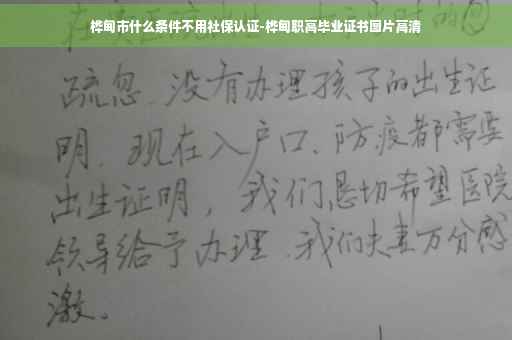 桦甸市什么条件不用社保认证-桦甸职高毕业证书图片高清
疏忽、没有办理孩子的出生证
明、现在入户口、防疫都需要
出生证明，我们恳切希望医院
领导给予办理、我们夫妻万分感
激。